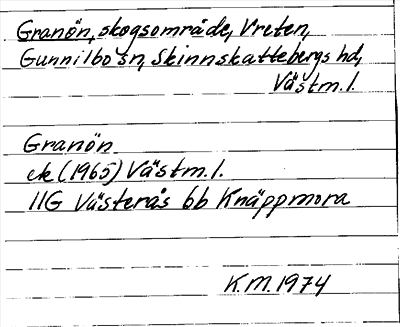 Granön, skogsområde, Vreten,
Gunnilbo sn, Skinnskattebergs hd,
Västm.l.
Granön
ek (1965) Västm.l.
11G Västerås 6b Knäppmora
K.M. 1974